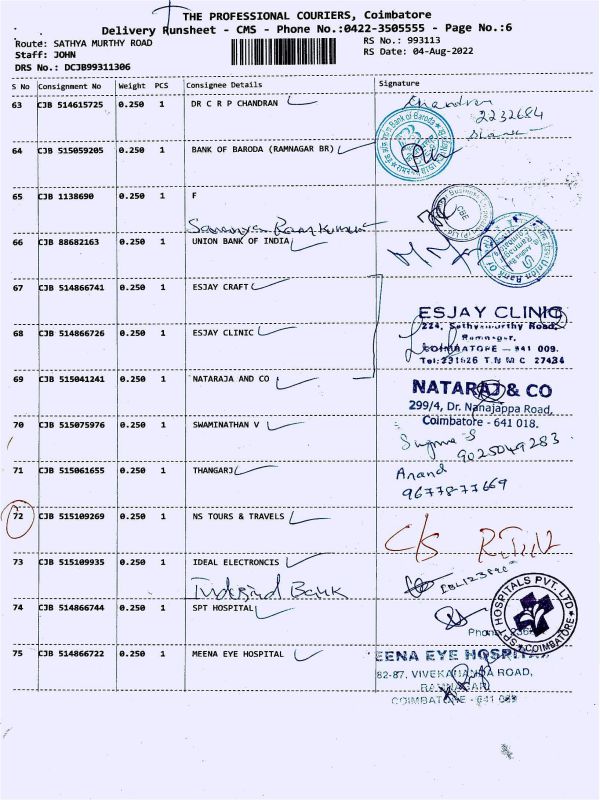 THE PROFESSIONAL COURIERS, Coimbatore
Delivery Runsheet - CMS - Phone No.:0422-3505555 - Page No.:6
Route: SATHYA MURTHY ROAD
RS No.: 993113
Staff: JOHN
RS Date: 04-Aug-2022
DRS No.: DCJB99311306
S No Consignment No Weight PCS Consignee Details Signature
63 CJB 514615725 0.250 1 DR C R P CHANDRAN
Chandran
2232684
64 CJB 515059205 0.250 1 BANK OF BARODA (RAMNAGAR BR)
Bank of Baroda
65 CJB 1138690 0.250 1 F
Saranya Ramkumar
66 CJB 88682163 0.250 1 UNION BANK OF INDIA
67 CJB 514866741 0.250 1 ESJAY CRAFT
68 CJB 514866726 0.250 1 ESJAY CLINIC
ESJAY CLINIC
224, Sathyamurthy Road,
Ramnagar,
COIMBATORE - 641 009.
Tel: 231626 T N M C 27434
69 CJB 515041241 0.250 1 NATARAJA AND CO
NATARAJ & CO
299/4, Dr. Nanajappa Road,
Coimbatore - 641 018.
70 CJB 515075976 0.250 1 SWAMINATHAN V
Suguna S
9025049283
71 CJB 515061655 0.250 1 THANGARJ
Anand
96778-77669
72 CJB 515109269 0.250 1 NS TOURS & TRAVELS
C/S
73 CJB 515109935 0.250 1 IDEAL ELECTRONCIS
Indusind Bank
74 CJB 514866744 0.250 1 SPT HOSPITAL
SPT HOSPITALS PVT. LTD
COIMBATORE
75 CJB 514866722 0.250 1 MEENA EYE HOSPITAL
EENA EYE HOSPITAL
82-87, VIVEKANANDA ROAD,
RAMNAGAR
COIMBATORE - 641 009